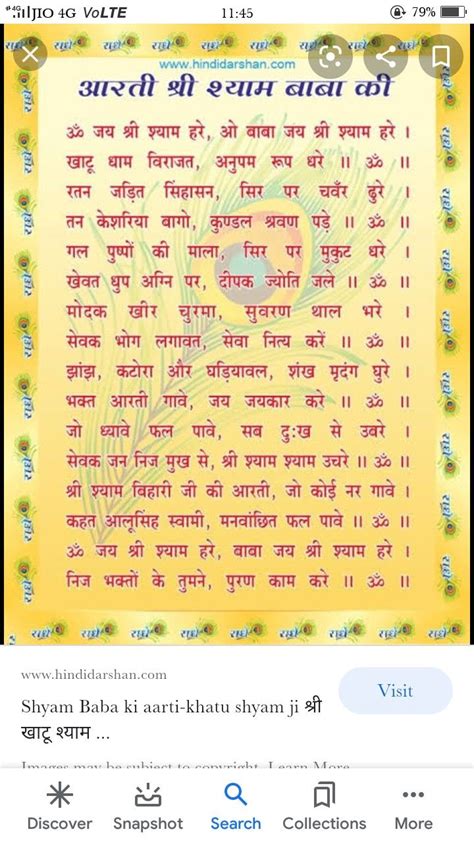 JIO 4G VoLTE 11:45 79%
www.hindidarshan.com
आरती श्री श्याम बाबा की
ॐ जय श्री श्याम हरे, ओ बाबा जय श्री श्याम हरे ।
खाटू धाम विराजत, अनुपम रूप धरे ॥ ॐ ॥
रतन जड़ित सिंहासन, सिर पर चवँर ढुरे ।
तन केशरिया बागो, कुण्डल श्रवण पड़े ॥ ॐ ॥
गल पुष्पों की माला, सिर पर मुकुट धरे ।
खेवत धुप अग्नि पर, दीपक ज्योति जले ॥ ॐ ॥
मोदक खीर चुरमा, सुवरण थाल भरे ।
सेवक भोग लगावत, सेवा नित्य करें ॥ ॐ ॥
झांझ, कटोरा और घड़ियावल, शंख मृदंग घुरे ।
भक्त आरती गावे, जय जयकार करे ॥ ॐ ॥
जो ध्यावे फल पावे, सब दुःख से उबरे ।
सेवक जन निज मुख से, श्री श्याम श्याम उचरे ॥ ॐ ॥
श्री श्याम बिहारी जी की आरती, जो कोई नर गावे ।
कहत आलूसिंह स्वामी, मनवांछित फल पावे ॥ ॐ ॥
ॐ जय श्री श्याम हरे, बाबा जय श्री श्याम हरे ।
निज भक्तों के तुमने, पुरण काम करे ॥ ॐ ॥
www.hindidarshan.com
Visit
Shyam Baba ki aarti-khatu shyam ji श्री
खाटू श्याम ...
Images may be subject to copyright. Learn More
Discover Snapshot Search Collections More